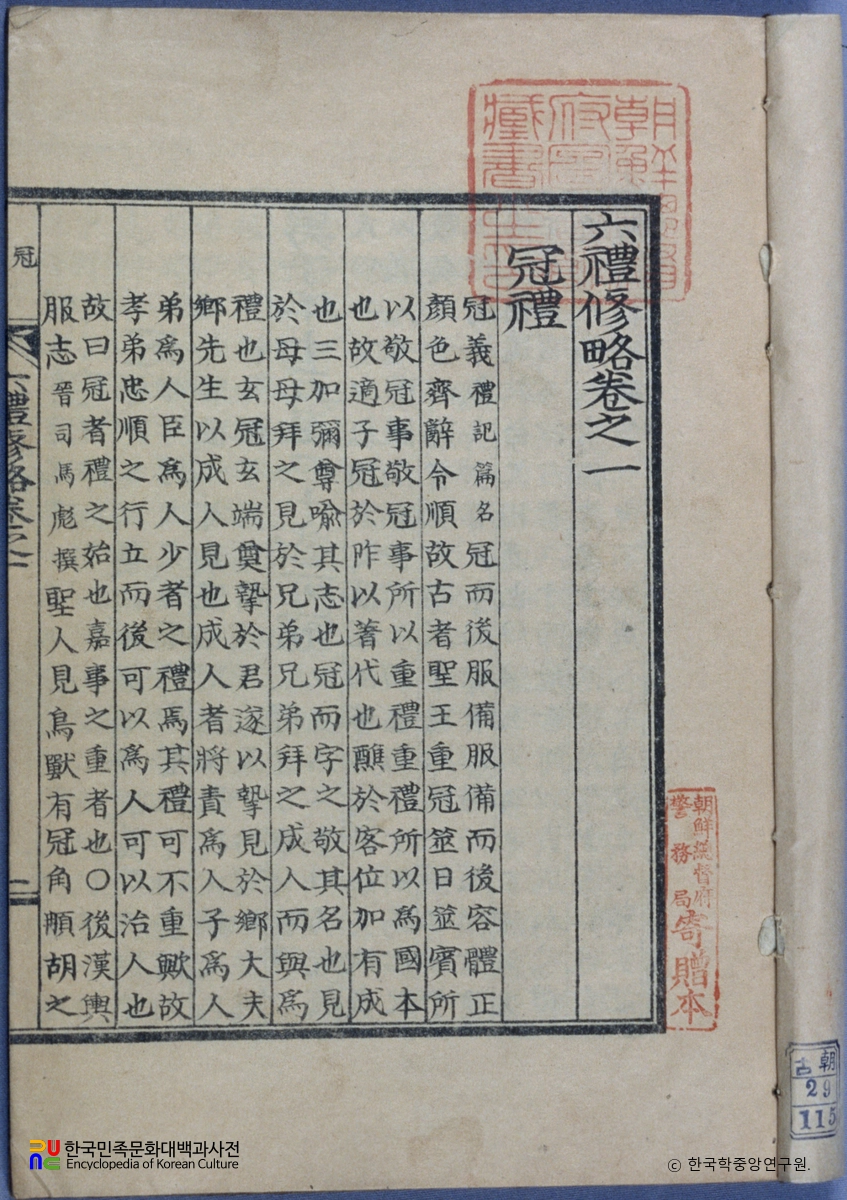 六禮修略卷之一
冠禮
冠義禮記篇名冠而後服備服備而後容體正
顏色齊辭令順故古者聖王重冠筮日筮賓所
以敬冠事敬冠事所以重禮重禮所以爲國本
也故適子冠於昨以著代也醮於客位加有成
也三加彌尊喩其志也冠而字之敬其名也見
於母母拜之見於兄弟兄弟拜之成人而與爲
禮也玄冠玄端奠摯於君遂以摯見於鄉大夫
鄉先生以成人見也成人者將責爲人子爲人
弟爲人臣爲人少者之禮焉其禮可不重歟故
孝弟忠順之行立而後可以爲人可以治人也
故曰冠者禮之始也嘉事之重者也○後漢輿
服志晉司馬彪撰聖人見鳥獸有冠角胡之
冠
六禮修略卷之一
一
朝鮮總督
府圖書館
藏書之印
朝鮮總督府
警務局
寄贈本
朝
古
29
115
한국민족문화대백과사전
Encyclopedia of Korean Culture
© 한국학중앙연구원.